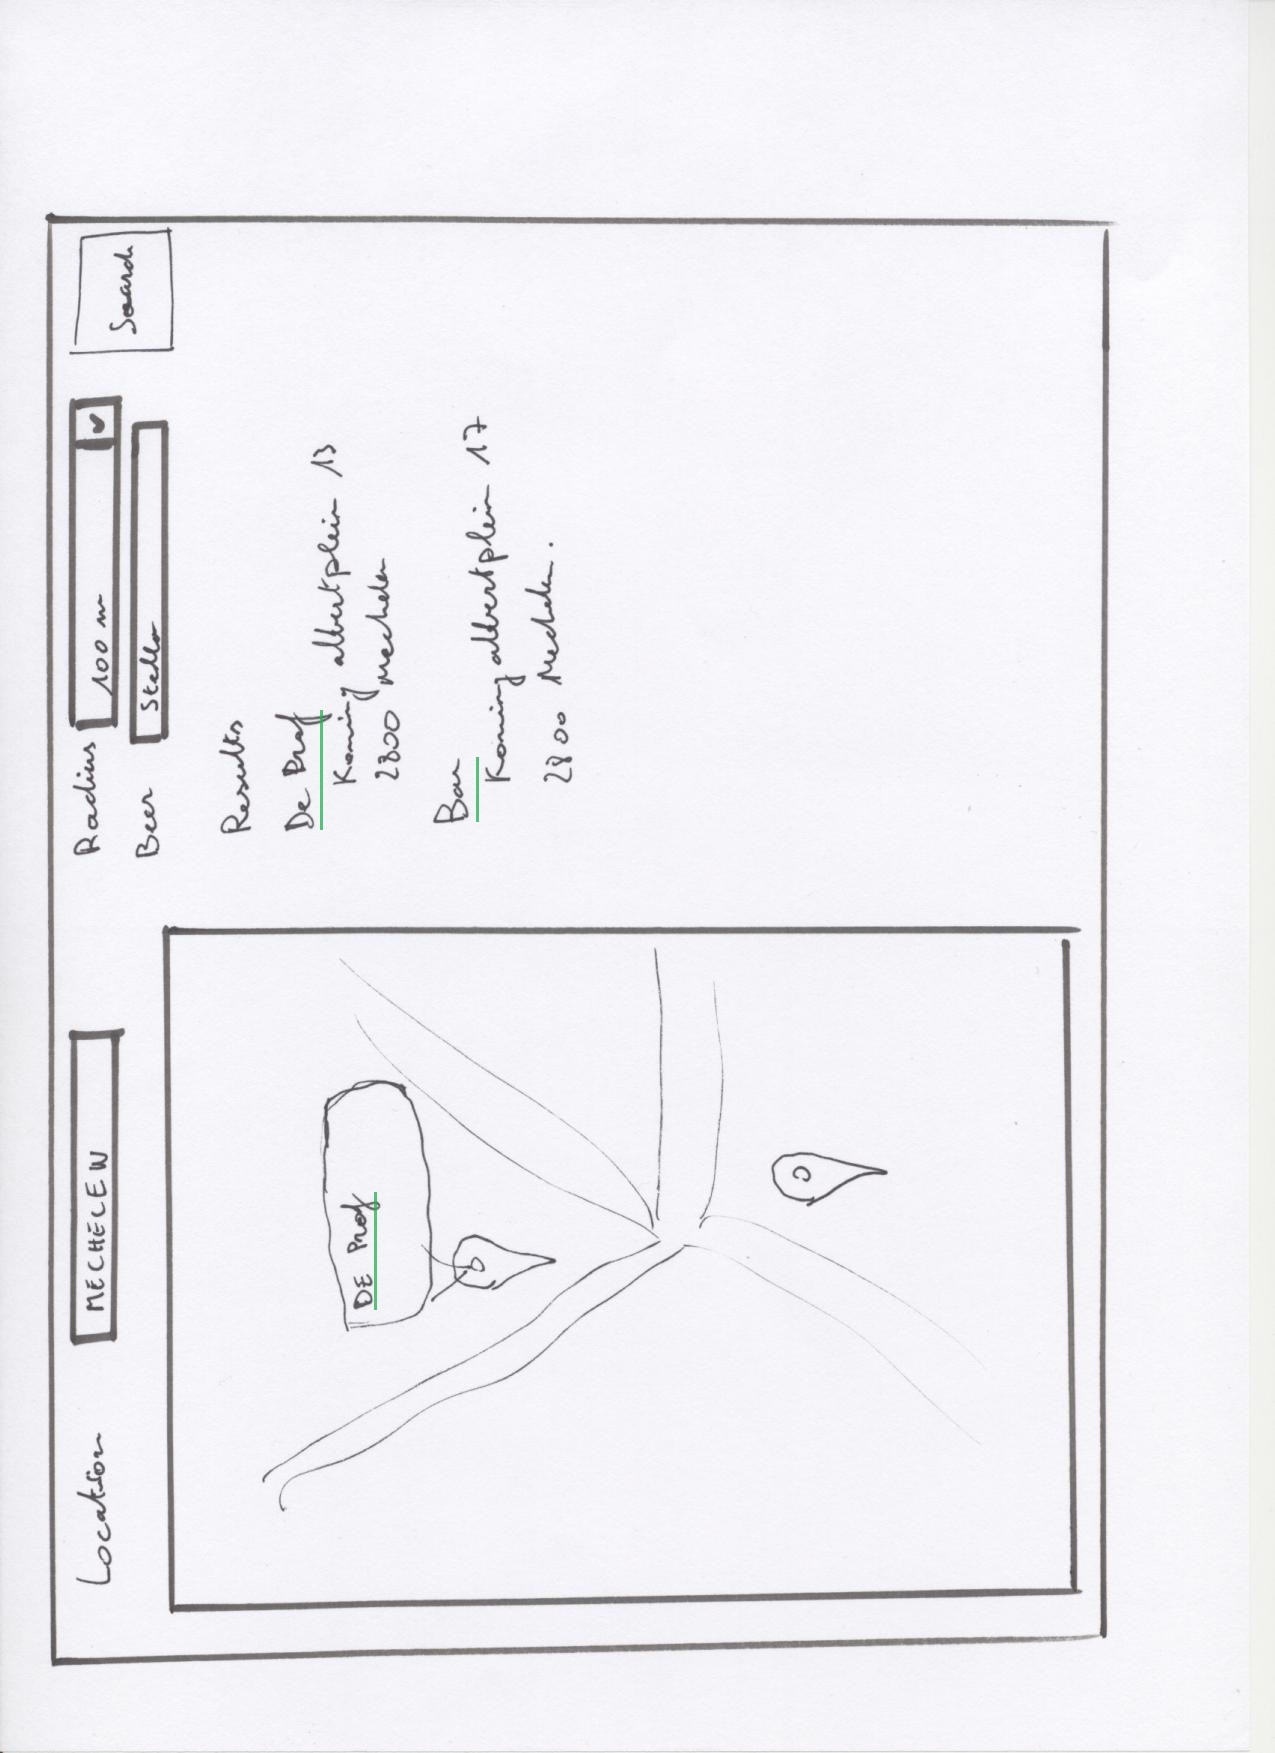 Location
MECHELEN
Radius
100 m
Beer
Stella
Search
DE Prof
Results
De Prof
Koning albertplein 13
2800 Mechelen
Bar
Koning albertplein 17
2800 Mechelen.